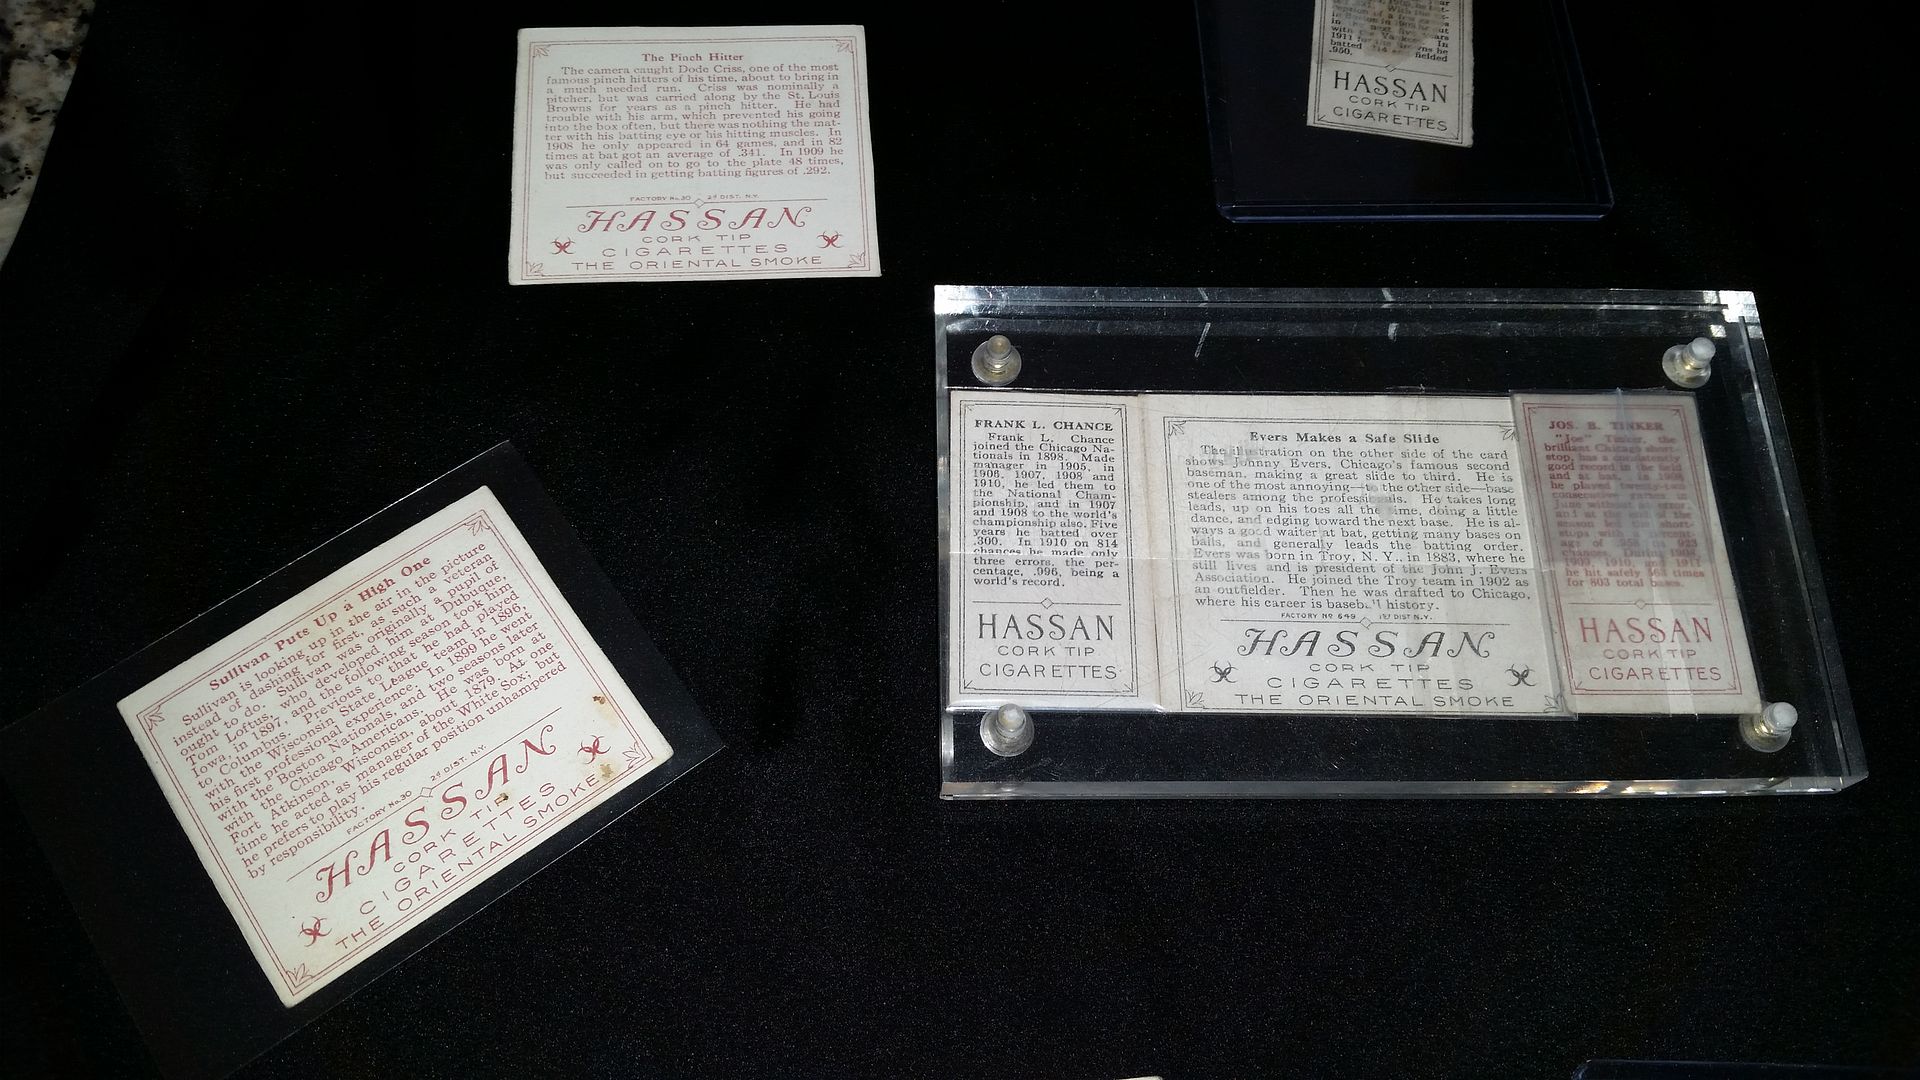 The Pinch Hitter
The camera caught Dode Criss, one of the most
famous pinch hitters of his time, about to bring in
a much needed run. Criss was nominally a
pitcher, but was carried along by the St. Louis
Browns for years as a pinch hitter. He had
trouble with his arm, which prevented his going
into the box often, but there was nothing the mat-
ter with his batting eye or his hitting muscles. In
1908 he only appeared in 64 games, and in 82
times at bat got an average of .341. In 1909 he
was only called on to go to the plate 48 times,
but succeeded in getting batting figures of .292.
FACTORY No. 30 2d DIST. N.Y.
HASSAN
CORK TIP
CIGARETTES
THE ORIENTAL SMOKE
1911 for the Browns he
batted .314 fielded
.950.
HASSAN
CORK TIP
CIGARETTES
FRANK L. CHANCE
Frank L. Chance
joined the Chicago Na-
tionals in 1898. Made
manager in 1905, in
1906, 1907, 1908 and
1910, he led them to
the National Cham-
pionship, and in 1907
and 1908 to the world's
championship also. Five
years he batted over
.300. In 1910 on 814
chances he made only
three errors, the per-
centage, .996, being a
world's record.
HASSAN
CORK TIP
CIGARETTES
Evers Makes a Safe Slide
The illustration on the other side of the card
shows Johnny Evers, Chicago's famous second
baseman, making a great slide to third. He is
one of the most annoying—to the other side—base
stealers among the professionals. He takes long
leads, up on his toes all the time, doing a little
dance, and edging toward the next base. He is al-
ways a good waiter at bat, getting many bases on
balls, and generally leads the batting order.
Evers was born in Troy, N. Y., in 1883, where he
still lives and is president of the John J. Evers
Association. He joined the Troy team in 1902 as
an outfielder. Then he was drafted to Chicago,
where his career is baseball history.
FACTORY No 649 1st DIST N.Y.
HASSAN
CORK TIP
CIGARETTES
THE ORIENTAL SMOKE
JOS. B. TINKER
"Joe" Tinker, the
brilliant Chicago short-
stop, has a consistently
good record in the field
and at bat. In 1908
he played twenty-two
consecutive games in
June without an error,
and at the end of the
season led the short-
stops with a percent-
age of .958 on 923
chances. During 1908,
1909, 1910, and 1911
he hit safely 563 times
for 803 total bases.
HASSAN
CORK TIP
CIGARETTES
Sullivan Puts Up a High One
Sullivan is looking up in the air in the picture
instead of dashing for first, as such a veteran
ought to do. Sullivan was originally a pupil of
Tom Loftus, who developed him at Dubuque,
Iowa, in 1897, and the following season took him
to Columbus. Previous to that he had played
with the Wisconsin State League team in 1896,
his first professional experience. In 1899 he went
with the Boston Nationals, and two seasons later
with the Chicago Americans. He was born at
Fort Atkinson, Wisconsin, about 1879. At one
time he acted as manager of the White Sox; but
he prefers to play his regular position unhampered
by responsibility.
FACTORY No. 30 2d DIST. N.Y.
HASSAN
CORK TIP
CIGARETTES
THE ORIENTAL SMOKE